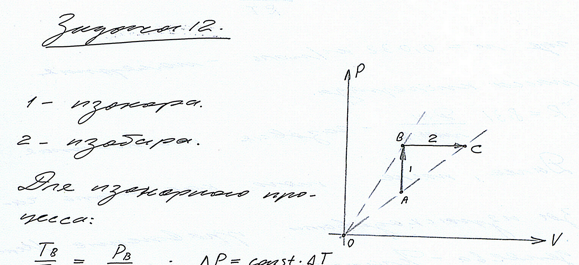 Задача 12.
1 – изохора.
2 – изобара.
Для изохорного про-
цесса:
T_B = P_B ; ΔP = const · ΔT
P
B 2 C
1
A
0 V